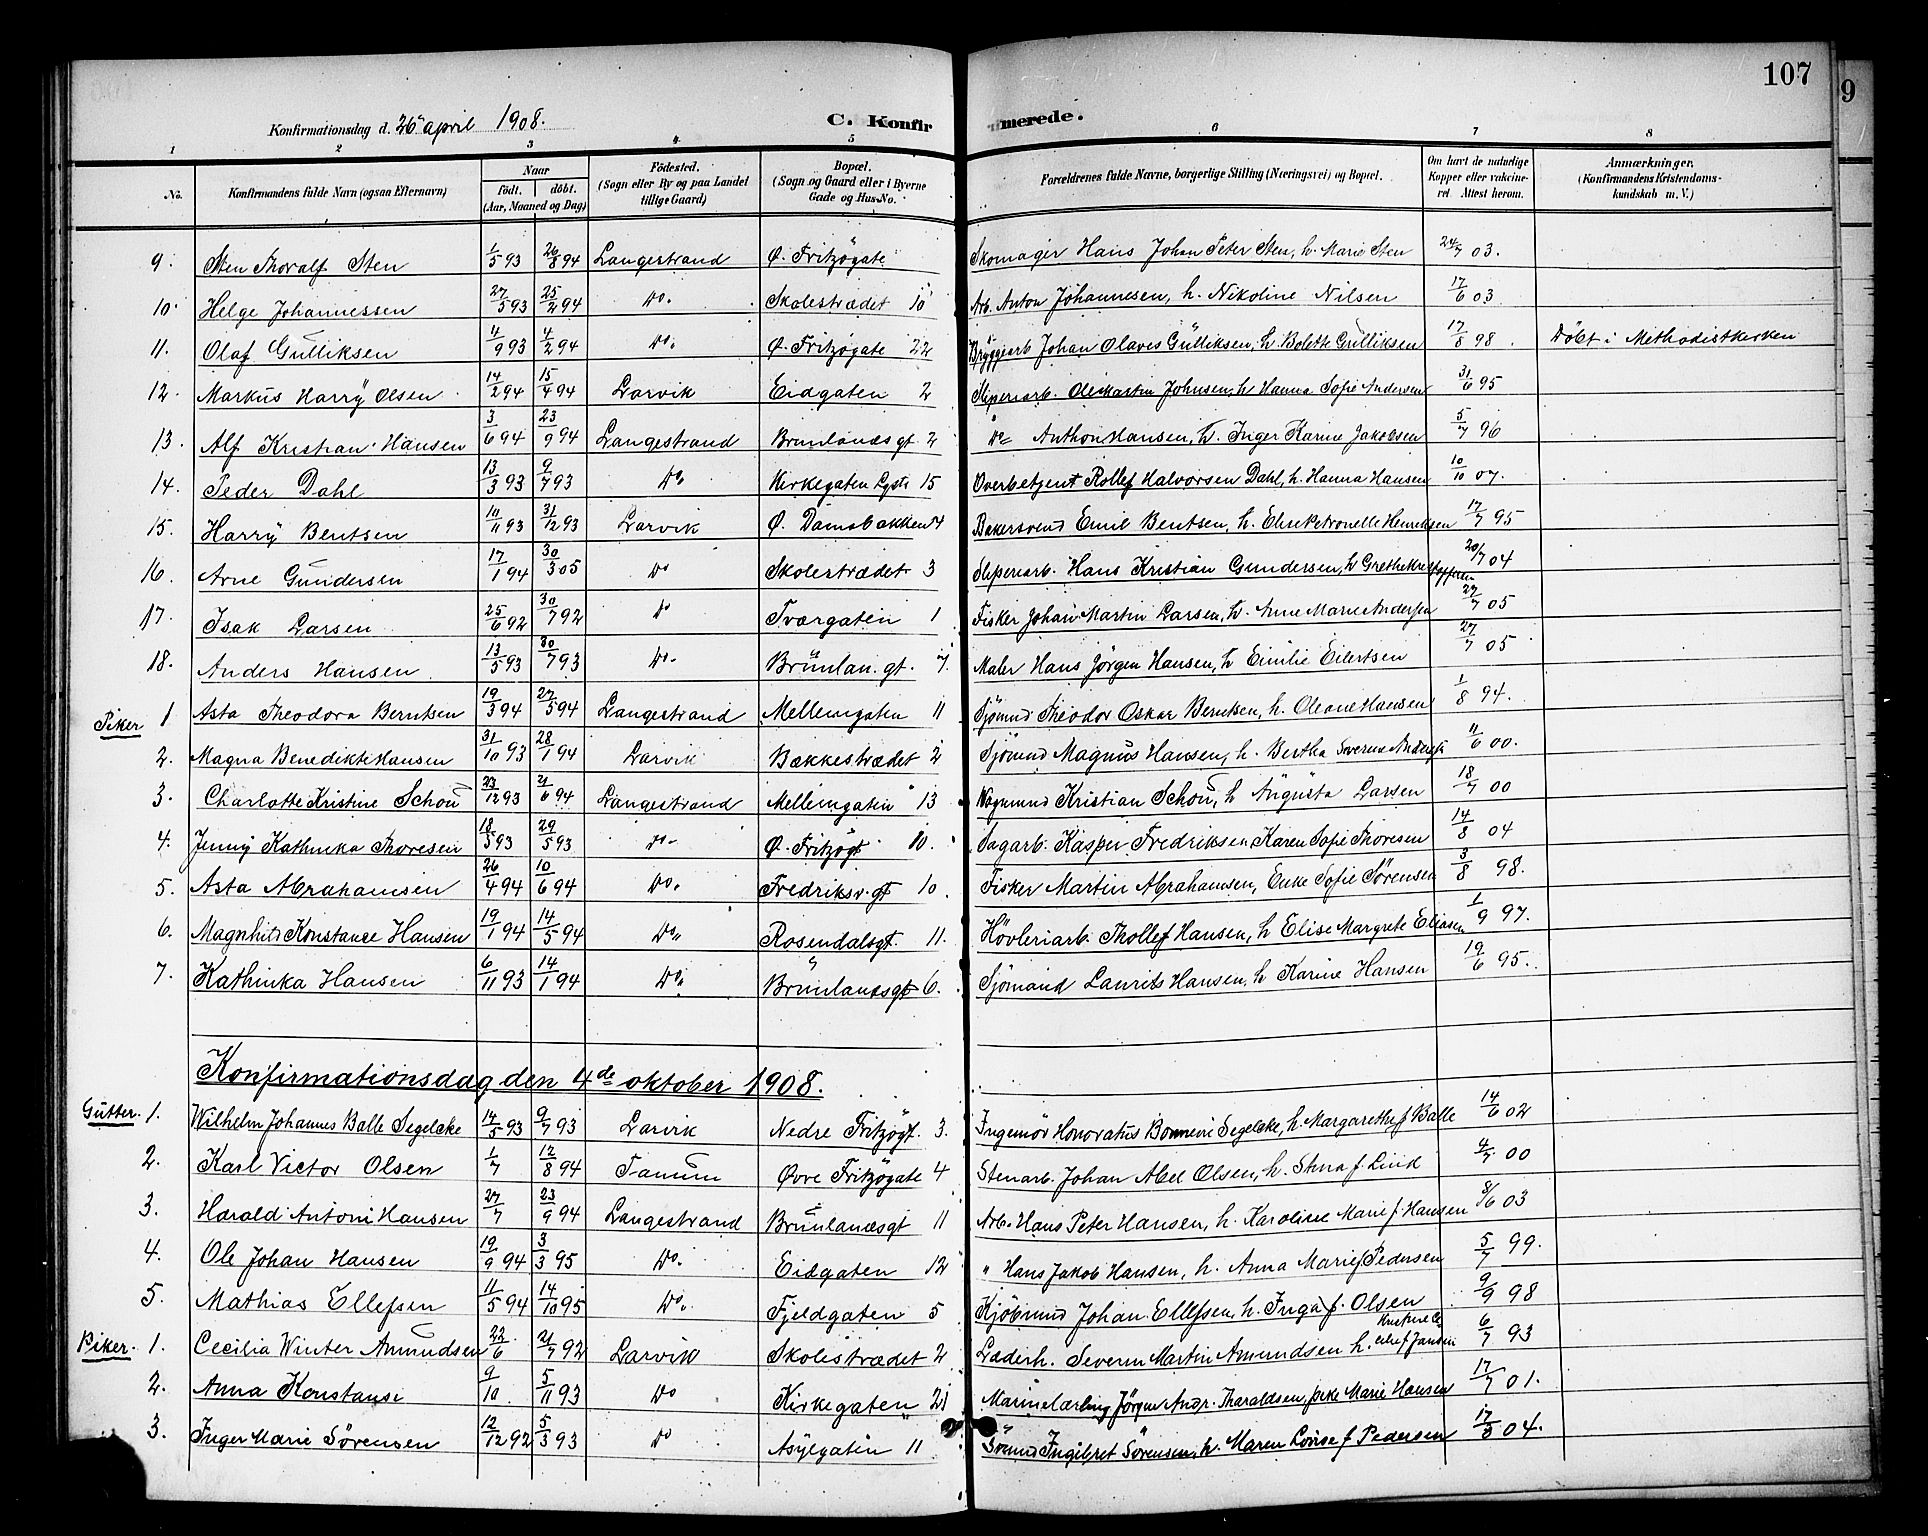 107
9
Konfirmationsdag d. 26 april 1908. C. Konfirmerede.
1 2 3 4 5 6 7 8
No. Konfirmandens fulde Navn (ogsaa Efternavn) Naar födt. döbt. (Aar, Maaned og Dag) Födested. (Sogn eller By og paa Landet tillige Gaard) Bopæl. (Sogn og Gaard eller i Byerne Gade og Hus-No. Forældrenes fulde Navne, borgerlige Stilling (Næringsvei) og Bopæl. Om havt de naturlige Kopper eller vakcineret. Attest herom. Anmærkninger. (Konfirmandens Kristendomskundskab m. V.)
9. Sten Thoralf Sten 1/5 93 26/8 94 Langestrand Ø. Fritzögate Skomager Hans Johan Peter Sten, h. Marie Sten 24/7 03.
10. Helge Johannessen 27/5 93 25/2 94 Do. Skolestrædet 10 Arb. Anton Johannesen, h. Nikoline Nilsen 17/6 03
11. Olaf Gulliksen 4/9 93 4/2 94 Do. Ø. Fritzögate 22 Bryggiarb Johan Olaves Gulliksen, h. Bolette Gulliksen 17/8 98. Döbt i Methodistkirken
12. Markus Harry Olsen 14/2 94 15/4 94 Larvik Eidgaten 2 Sliperiarb. Ole Martin Johnsen, h Hanna Sofie Andersen 31/6 95
13. Alf Kristian Hansen 3/6 94 23/9 94 Langestrand Brunlandsgt. 2 Do Anthon Hansen, h. Inger Karine Jakobsen 5/7 96
14. Peder Dahl 13/3 93 9/7 93 Do Kirkegaten 15 Overbetjent Rollef Halvorsen Dahl, h. Hanna Hansen 10/10 07.
15. Harry Bentsen 10/11 93 31/12 93 Larvik Ø. Damsbakken 4 Bakersvend Emil Bentsen, h. Elise Petronelle Henriksen 17/7 95
16. Arne Gundersen 17/1 94 30/3 05 Do Skolestrædet 3 Sliperiarb. Hans Kristian Gundersen, h Grethe Kristoffersen 20/7 04
17. Isak Larsen 25/6 92 30/7 92 Do Tværgaten 1 Fisker Johan Martin Larsen, h. Anne Marie Andersen 27/7 05
18. Anders Hansen 13/5 93 30/7 93 Do. Brunlan.gt. 7 Maler Hans Jörgen Hansen, h Emilie Eilertsen 27/7 05
Piker 1 Asta Theodora Berntsen 19/3 94 27/5 94 Langestrand Mellemgaten 11 Sjömnd Theodor Oskar Berntsen, h. Oleane Hansen 1/8 94.
2. Magna Benedikte Hansen 31/10 93 28/1 94 Larvik Bækkestrædet 2 Sjömnd Magnus Hansen, h. Bertha Severine 11/6 00.
3. Charlotte Kristine Schou 23/12 93 21/6 94 Langestrand Mellemgaten 13 Vognmnd Kristian Schou, h Augusta Larsen 18/7 00
4. Jenny Kathinka Thoresen 18/5 93 29/5 93 Do Ø. Fritzögt 10. Sagarb. Kasper Fredriksen Karen Sofie Thoresen 14/8 04
5. Asta Abrahamsen 26/4 94 10/6 94 Do. Fredriksv.gt 10 Fisker Martin Abrahamsen, Enke Sofie Sörensen 3/8 98.
6. Magnhild Konstance Hansen 19/1 94 14/5 94 Do. Rosendalsgt. 11. Hövleriarb. Thollef Hansen, h Elise Margrete Eliasen 1/9 97.
7. Kathinka Hansen 6/11 93 14/1 94 Do. Brunlandsgt 6. Sjömand Laurits Hansen, h Karine Hansen 19/6 95.
Konfirmationsdag den 4de oktober 1908.
Gutter. 1. Wilhelm Johannes Balle Segelcke 14/5 93 9/7 93 Larvik Nedre Fritzögt. 3. Ingeniör Honoratus Bonnevie Segelcke, h. Margarethe f Balle 14/6 02
2. Karl Victor Olsen 1/7 12/8 94 Tanum Øvre Fritzögate 4 Stenarb. Johan Abel Olsen, h. Stina f. Lind 4/7 00
3. Harald Antoni Hansen 27/7 23/9 94 Langestrand Brunlandsgt 11 Arb. Hans Peter Hansen, h. Karoline Marie f. Hansen 8/6 03
4. Ole Johan Hansen 19/9 94 3/3 95 Do. Eidgaten 12 " Hans Jakob Hansen, h. Anna Marie f Pedersen 5/7 99.
5. Mathias Ellefsen 11/5 94 14/10 95 Do. Fjeldgaten 5 Kjöbmnd Johan Ellefsen, h. Inga f. Olsen 9/9 98
Piker. 1. Cecilia Winter Amundsen 22/6 21/7 92 Larvik Skolestrædet 2 Læderh. Severin Martin Amundsen h. Kristine Cecilie f Jansen 6/7 93
2. Anna Konstansi 9/10. 5/11 93 Do Kirkegaten 21 Marinelærling Jörgen Andr. Tharaldsen, pike Marie Hansen 17/7 01.
3. Inger Marie Sörensen 12/12 92 5/3 93 Do Asylgaten 11 Sömnd Ingebret Sörensen, h. Maren Lovise f Pedersen 17/3 04.